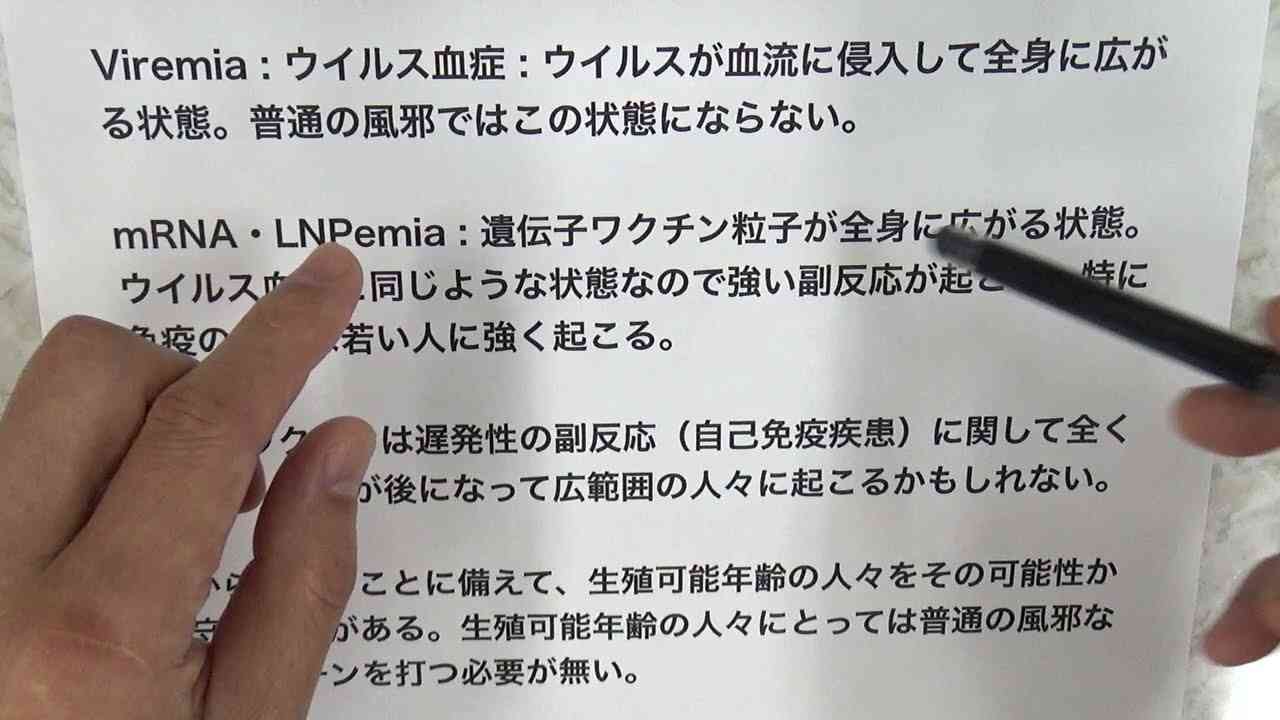 Viremia：ウイルス血症：ウイルスが血流に侵入して全身に広が
る状態。普通の風邪ではこの状態にならない。
mRNA・LNPemia：遺伝子ワクチン粒子が全身に広がる状態。
ウイルス血 同じような状態なので強い副反応が起こ 特に
免疫の 若い人に強く起こる。
は遅発性の副反応（自己免疫疾患）に関して全く
が後になって広範囲の人々に起こるかもしれない。
ことに備えて、生殖可能年齢の人々をその可能性か
がある。生殖可能年齢の人々にとっては普通の風邪な
ンを打つ必要が無い。